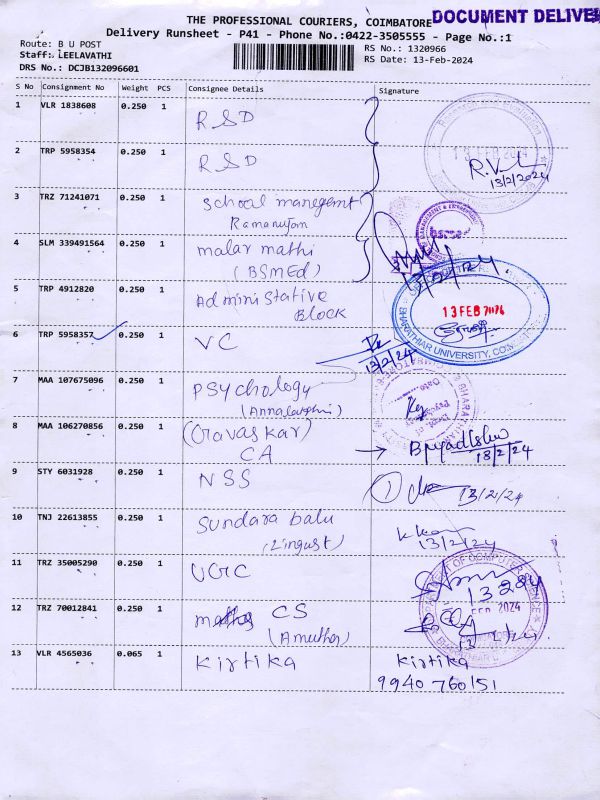 THE PROFESSIONAL COURIERS, COIMBATORE
DOCUMENT DELIVE
Delivery Runsheet - P41 - Phone No.:0422-3505555 - Page No.:1
Route: B U POST
Staff: LEELAVATHI
DRS No.: DCJB132096601
RS No.: 1320966
RS Date: 13-Feb-2024
S No Consignment No Weight PCS Consignee Details Signature
1 VLR 1838608 0.250 1 RSD
2 TRP 5958354 0.250 1 RSD
13 FEB 2024
13/2/2024
3 TRZ 71241071 0.250 1 School management
Ramanujam
4 SLM 339491564 0.250 1 malar mathi
(BSMEd)
5 TRP 4912820 0.250 1 Administative
Block
13 FEB
BHARATHIAR UNIVERSITY, COIMBATORE
6 TRP 5958357 0.250 1 VC
13/2/24
7 MAA 107675096 0.250 1 PSychology
8 MAA 106270856 0.250 1 (Gravaskar)
CA
13/2/24
9 STY 6031928 0.250 1 NSS
1 13/2/24
10 TNJ 22613855 0.250 1 Sundara balu
(Lingust)
13/2/24
11 TRZ 35005290 0.250 1 UGC
DEPARTMENT OF COMPUTER SCIENCE
FEB 2024
12 TRZ 70012841 0.250 1 CS
(Amutha)
13 VLR 4565036 0.065 1 Kirtika Kirtika
9940760151